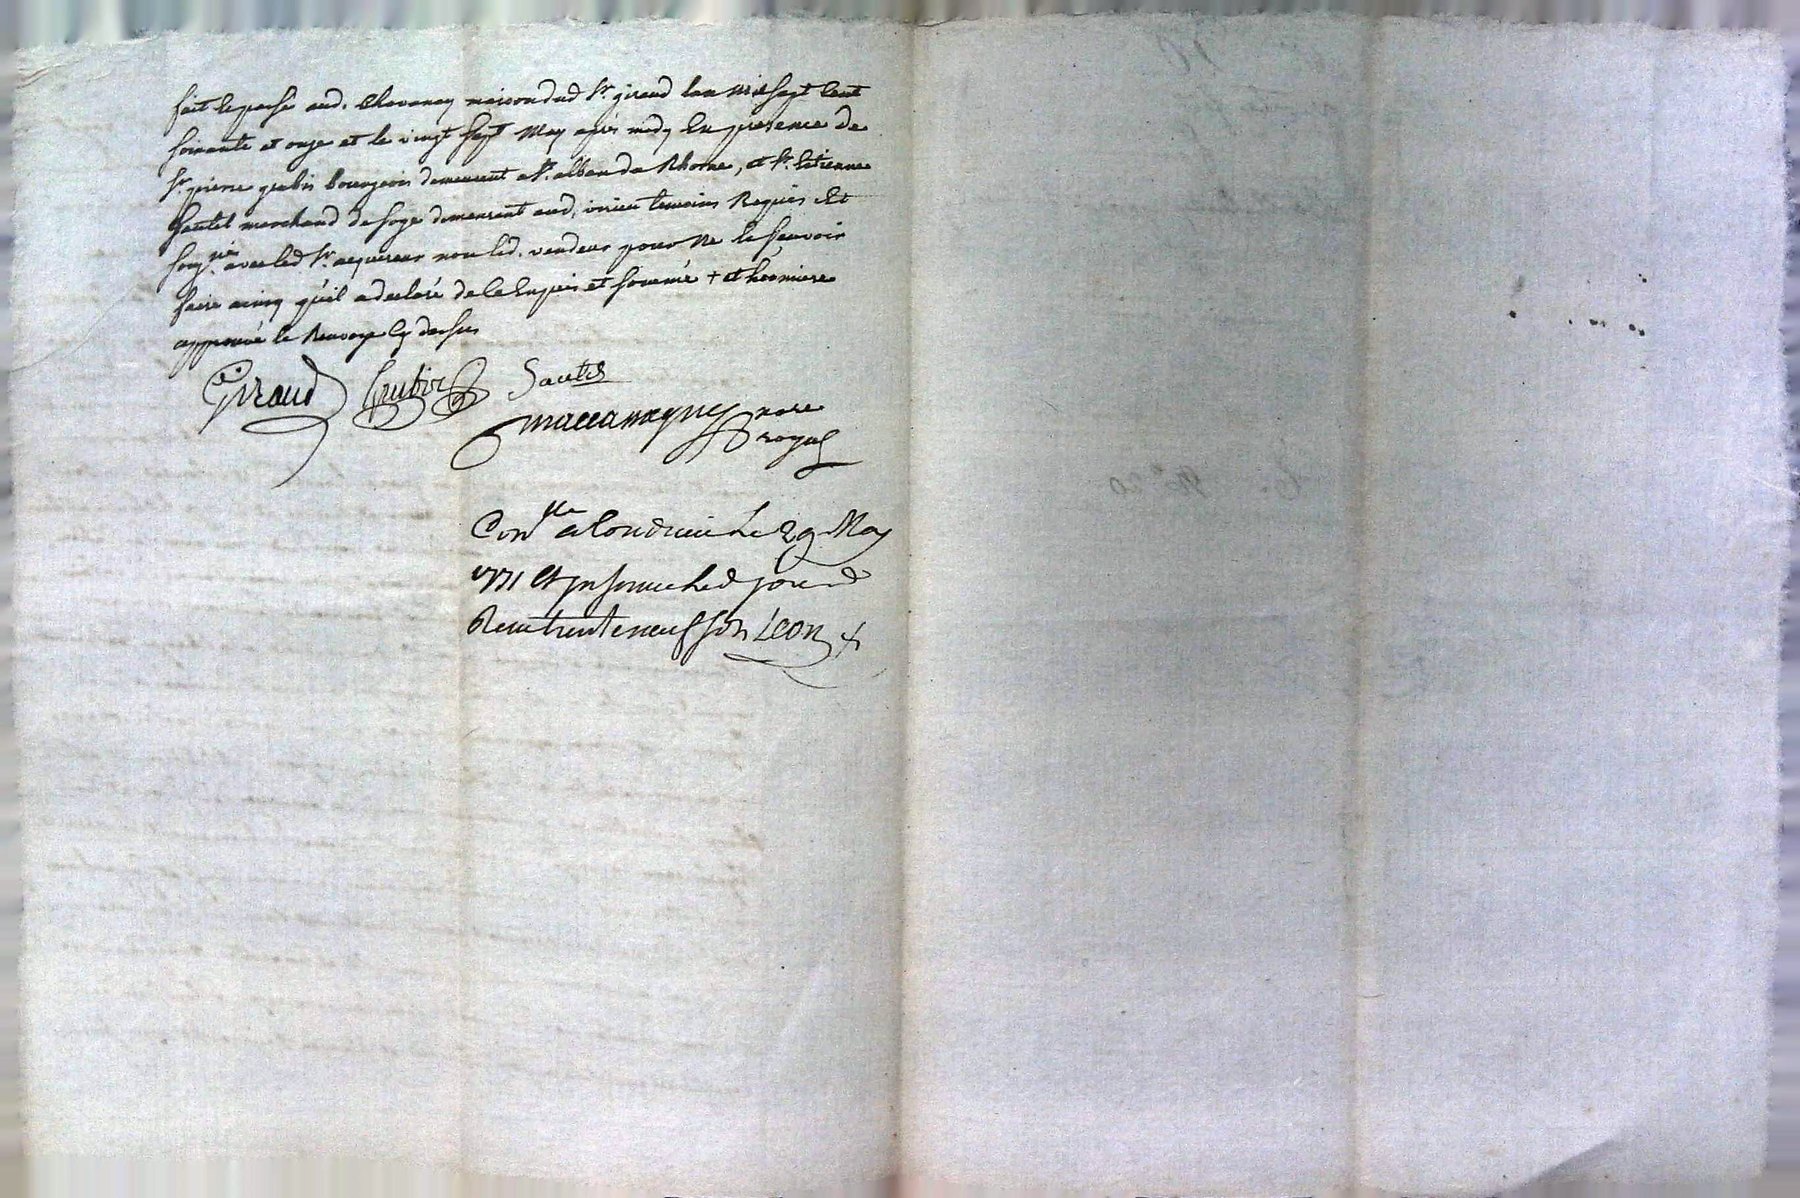 fait et passé aud. Chavanay maison dud Sr. giraud l'an mil sept Cent
soixante et onze et le vingt sept May après midy En presence de
Sr. pierre grubis Bourgeois demeurant a St. alban du Rhone, et Sr. Etienne
Sautel marchand de soye demeurant aud. virieu temoins Requis Et
soug.nés avec led Sr. acquereur non led. vendeur pour Ne le sçavoir
faire ainsy qu'il a declaré de ce Enquis et sommé +
approuvé le Renvoye Cy dessus
Giraud Grubis Sautel
maccamagne nore
royal
Con.lle a Condrieu Le 29 May
1771 Et led jour
Reçu trente neuf sols Leon